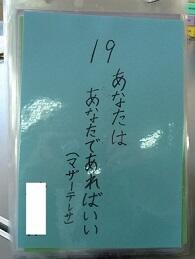 19
あなたは
あなたであればいい
(マザーテレサ)